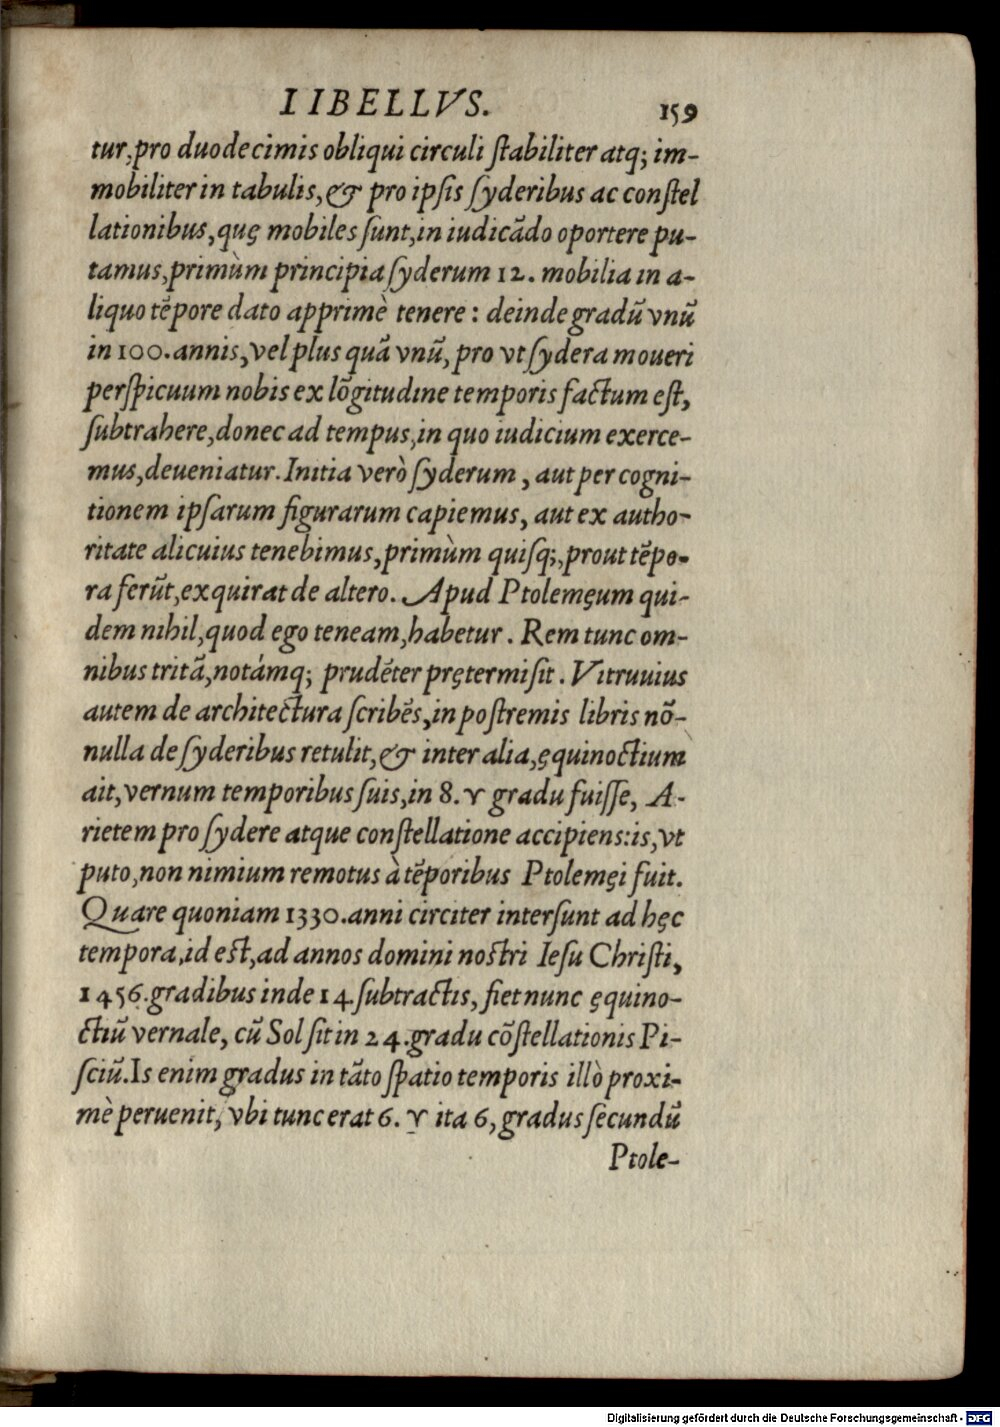 IIBELLVS. 159
tur, pro duodecimis obliqui circuli ſtabiliter atq; im-
mobiliter in tabulis, & pro ipſis ſyderibus ac conſtel
lationibus, quę mobiles ſunt, in iudicādo oportere pu-
tamus, primùm principia ſyderum 12. mobilia in a-
liquo tēpore dato apprimè tenere: deinde gradū vnū
in 100. annis, vel plus quā vnū, pro vt ſydera moueri
perſpicuum nobis ex lōgitudine temporis factum eſt,
ſubtrahere, donec ad tempus, in quo iudicium exerce-
mus, deueniatur. Initia verò ſyderum, aut per cogni-
tionem ipſarum figurarum capiemus, aut ex autho-
ritate alicuius tenebimus, primùm quiſq;, prout tēpo-
ra ferūt, exquirat de altero. Apud Ptolemęum qui-
dem nihil, quod ego teneam, habetur. Rem tunc om-
nibus tritā, notámq; prudēter prętermiſit. Vitruuius
autem de architectura ſcribēs, in poſtremis libris nō-
nulla de ſyderibus retulit, & inter alia, ęquinoctium
ait, vernum temporibus ſuis, in 8. ♈ gradu fuiſſe, A-
rietem pro ſydere atque conſtellatione accipiens: is, vt
puto, non nimium remotus à tēporibus Ptolemęi fuit.
Quare quoniam 1330. anni circiter interſunt ad hęc
tempora, id eſt, ad annos domini noſtri Ieſu Chriſti,
1456. gradibus inde 14. ſubtractis, fiet nunc ęquino-
ctiū vernale, cū Sol ſit in 24. gradu cōſtellationis Pi-
ſciū. Is enim gradus in tāto ſpatio temporis illò proxi-
mè peruenit, vbi tunc erat 6. ♈ ita 6, gradus ſecundū
Ptole-
Digitalisierung gefördert durch die Deutsche Forschungsgemeinschaft - DFG